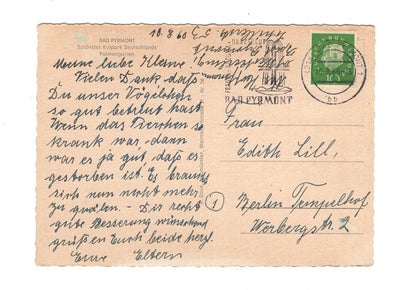 BAD PYRMONT
Schönster Kurpark Deutschlands
Palmengarten
10.8.60
Meine liebe Klam!
Vielen Dank daß
Du unser Vögelchen
so gut betreut hast.
Wenn das Tierchen so
krank war, dann
war es ja gut, daß es
gestorben ist. Es braucht
sich nun nicht mehr
zu quälen. – Dir recht
gute Besserung wünschend
grüßen Euch beide herzl.
Eure Eltern
BAD PYRMONT
10
Frau
Edith Lill,
1
Berlin Tempelhof
Werbergstr. 2